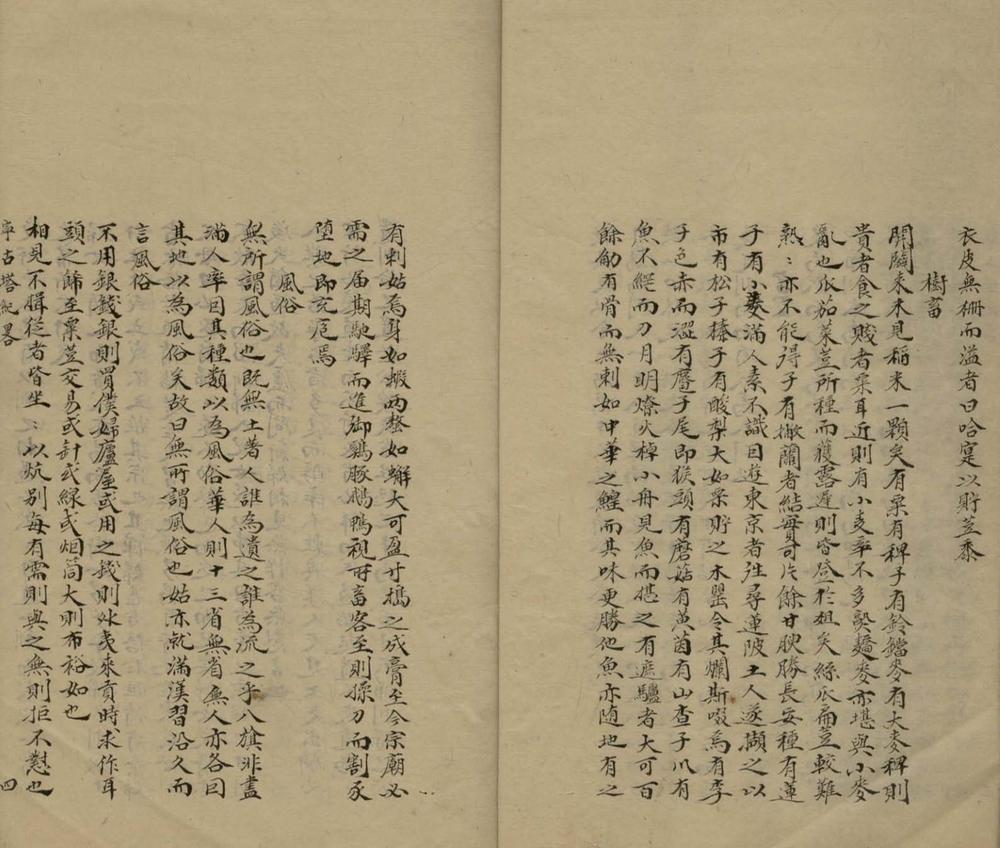 衣皮無柵而溢者曰哈寔以貯荳黍
樹畜
開闢來未見稲米一顆矣有粟有稗子有鈴鐺麥有大麥稗則
貴者食之賤者粟耳近則有小麦率不多熟蕎麥亦堪與小麥
亂也瓜茄菜荳所種而穫霜遲則皆登於俎矣絲瓜扁荳較難
熟〻亦不能得子有撇蘭者結實可片餘甘腴勝長安種有蓮
子有小菱滿人素不識目遊東京者徃尋蓮陂土人遂擷之以
市有松子榛子有酸梨大如栗貯之木罌令其爛斯啜焉有李
子色赤而澀有猴子尾即猴頭有蘑菇有黄茵有山查子爪有
魚不網而刀月明燎火棹小舟見魚而揕之有遮驢者大可百
餘觔有骨而無刺如中華之鰉而其味更勝他魚亦随地有之
有剌姑焉身如蝦両螯如蠏大可盈寸搗之成膏至今宗廟必
需之届期馳驛而進御鷄豚鵝鴨視所畜客至則操刀而割永
堕地即充庖焉
風俗
無所謂風俗也既無土著人誰為遺之誰為流之乎八旗非盡
滿人率因其種類以為風俗華人則十三省無省無人亦各因
其地以為風俗矣故曰無所謂風俗也姑亦就滿漢習沿久而
言風俗
不用銀錢銀則買僕婦廬屋或用之錢則外夷來貢時求作耳
頭之餙至粟荳交易或針或線或烟筒大則布裕如也
相見不揖従者皆坐〻以炕别每有需則與之無則拒不懟也
寧古塔紀畧 四